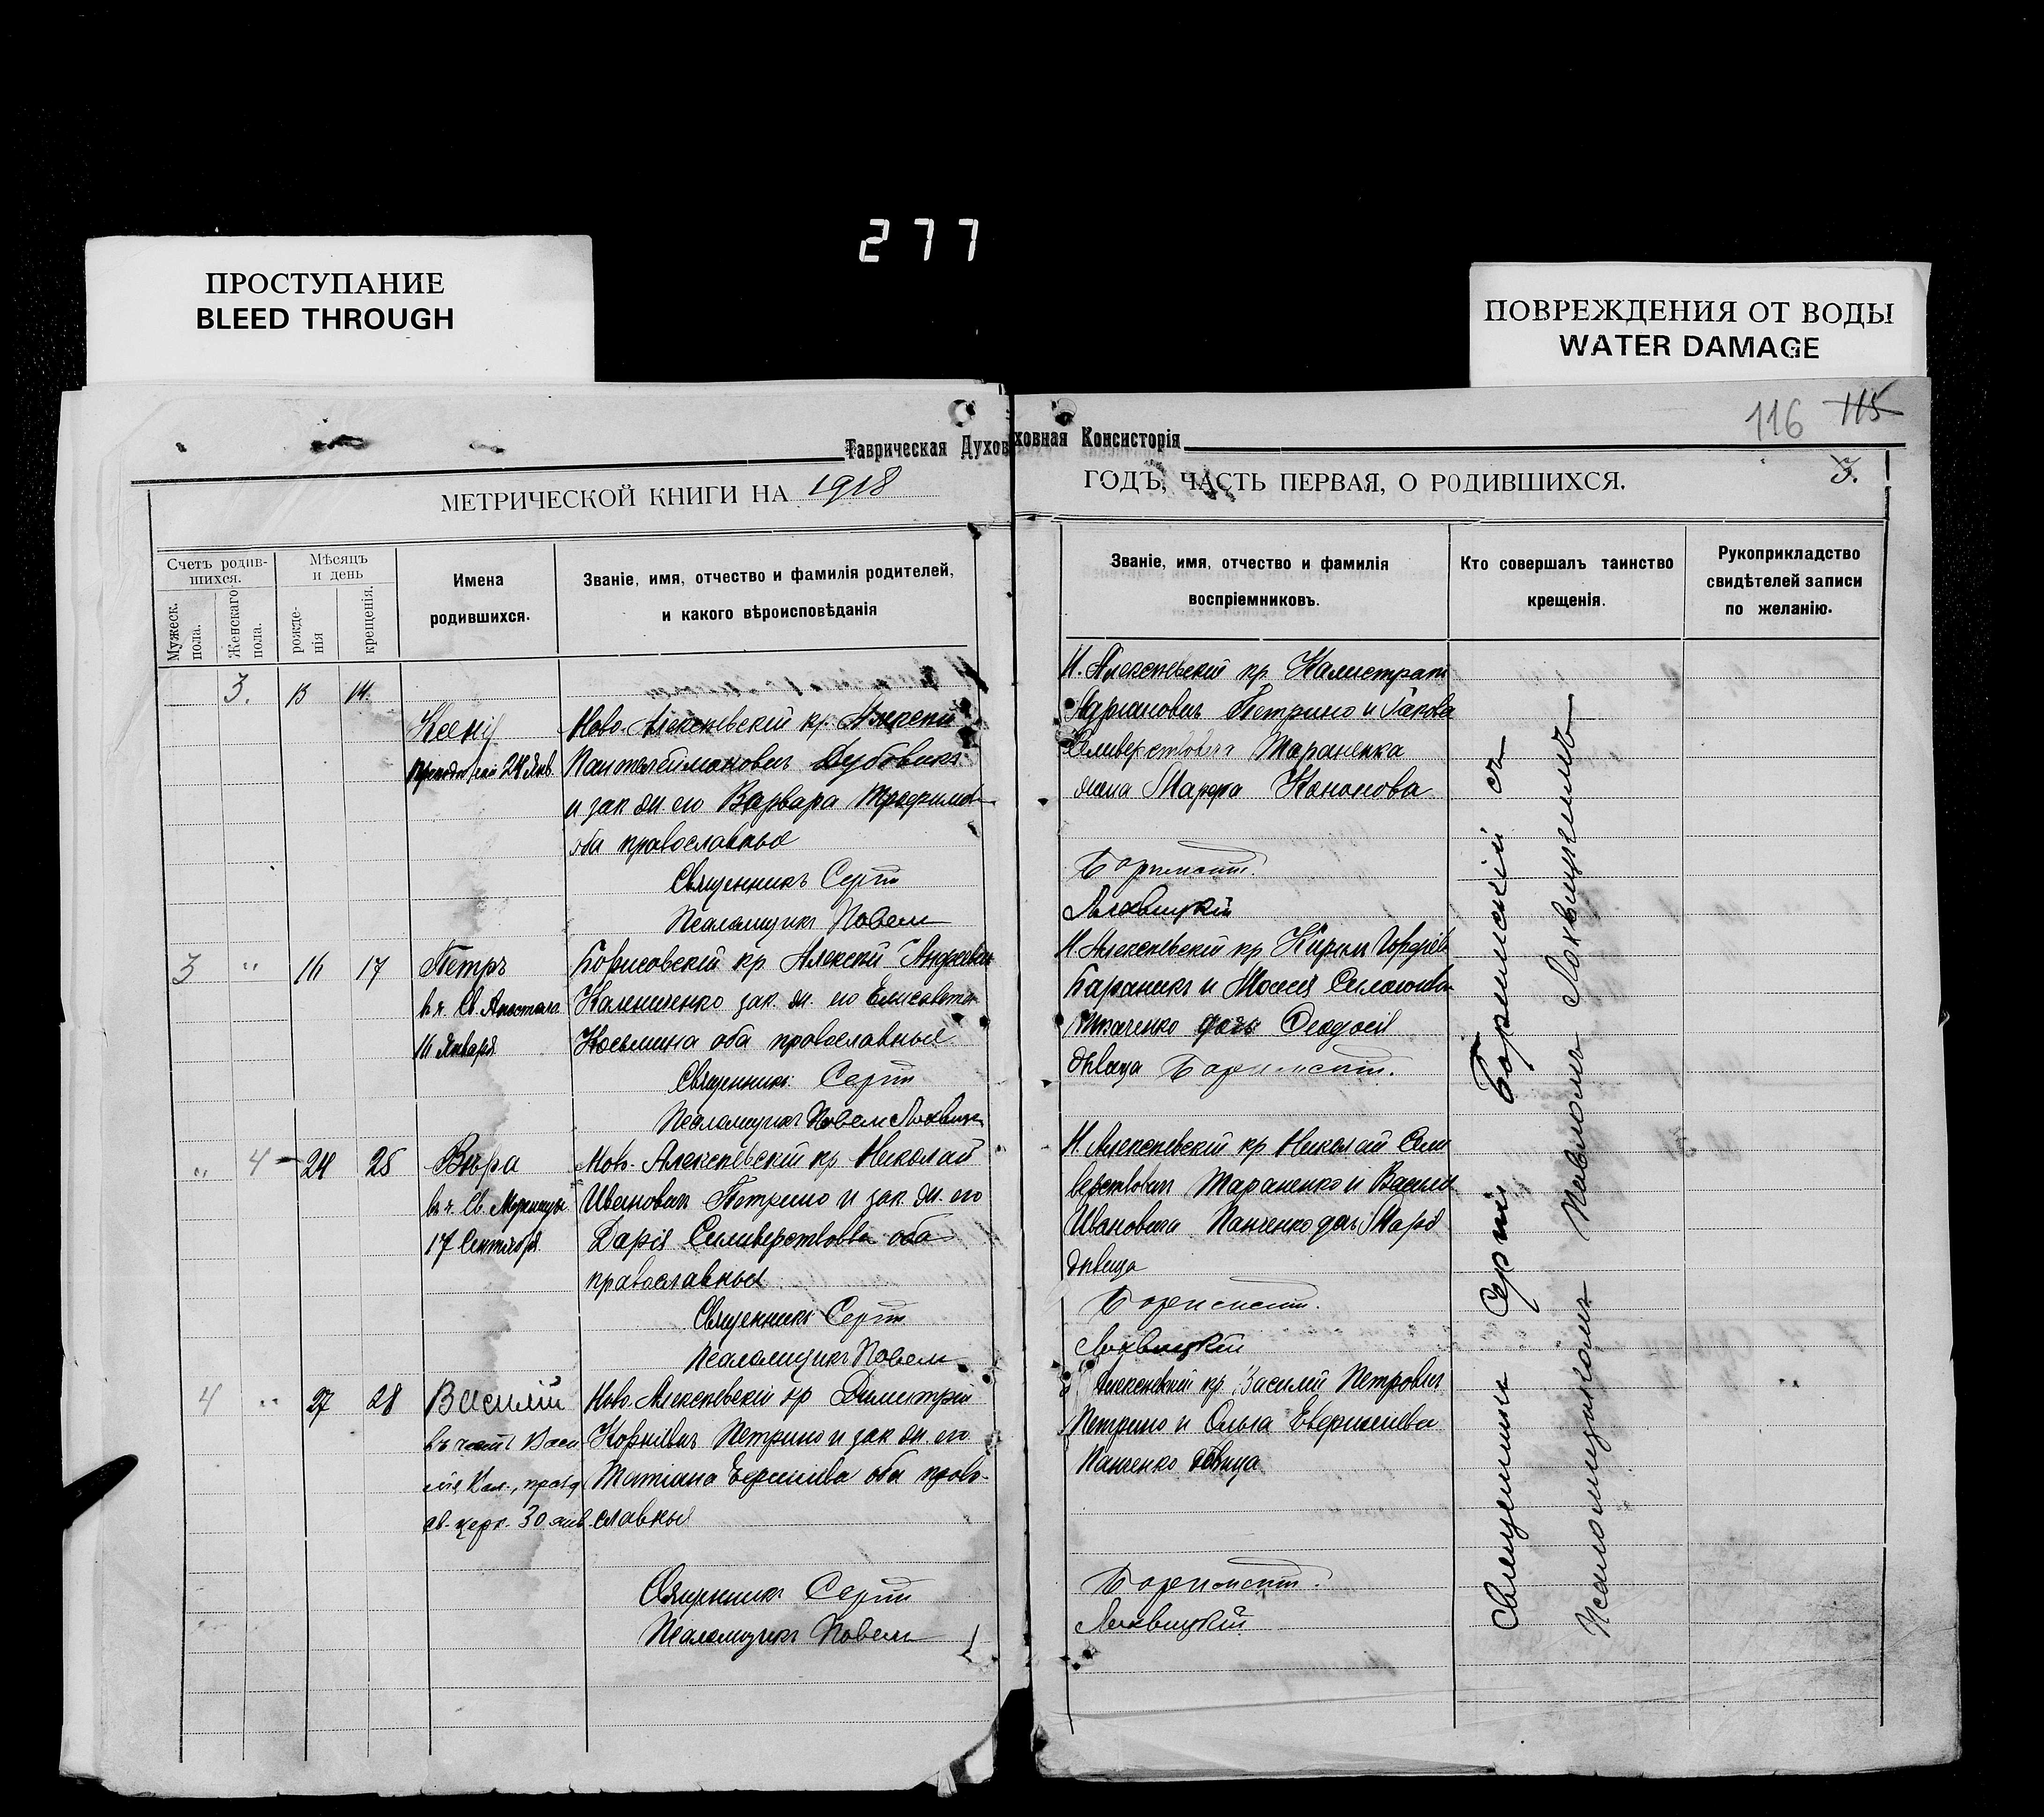 277
ПРОСТУПАНИЕ
BLEED THROUGH
ПОВРЕЖДЕНИЯ ОТ ВОДЫ
WATER DAMAGE
116 115
Таврическая Духовная Консисторія
МЕТРИЧЕСКОЙ КНИГИ НА 1918
ГОДЪ, ЧАСТЬ ПЕРВАЯ, О РОДИВШИХСЯ.
3.
Счетъ родив-
шихся.
Мужеск.
пола.
Женскаго
пола.
Мѣсяцъ
и день
рожде-
нія
крещенія.
Имена
родившихся.
Званіе, имя, отчество и фамилія родителей,
и какого вѣроисповѣданія
Званіе, имя, отчество и фамилія
воспріемниковъ.
Кто совершалъ таинство
крещенія.
Рукоприкладство
свидѣтелей записи
по желанію.
3. 13 14
Ксенія
24 Янв.
Ново-Алексѣевскій кр. Алексій
Пантелеимоновичъ Дубовикъ
и зак. ж. его Варвара Трофимова
оба православные
Священникъ Сергій
Псаломщикъ Павелъ
Н. Алексѣевскій кр. Калистратъ
Адріановичъ Петрино и Іакова
Селиверстовича Тараненка
жена Марфа Кононова
Лохвицкій
3 " 16 17
Петръ
въ ч. Св. Апостола
16 Января
Борисовскій кр. Алексій Андреевичъ
Калениченко зак. ж. его Елисавета
Косьмина оба православные
Священникъ Сергій
Псаломщикъ Павелъ Лохвицкій
Н. Алексѣевскій кр. Кирилъ
Бараникъ и Моисея
Ткаченко дочь Ѳеодосія
дѣвица
" 4 24 25
Вѣра
въ ч. Св. Мученицы
17 Сентября
Ново-Алексѣевскій кр. Николай
Ивановичъ Петрино и зак. ж. его
Дарія Селиверстовва оба
православные
Священникъ Сергій
Псаломщикъ Павелъ
Н. Алексѣевскій кр. Николай Сели
верстовичъ Тараненко и Васили
Ивановича Панченко дочь Марія
дѣвица
Лохвицкій
4 " 27 28
Василій
въ честь Васи
лія Вел., празд.
св. церк. 30 янв.
Ново-Алексѣевскій кр. Димитрій
Корніевичъ Петрино и зак. ж. его
Татіана оба право-
славные
Священникъ Сергій
Псаломщикъ Павелъ
Алексѣевскій кр. Василій Петровичъ
Петрино и Ольга
Панченко дѣвица
Лохвицкій
Священникъ Сергій съ
Псаломщикомъ Павломъ Лохвицкимъ